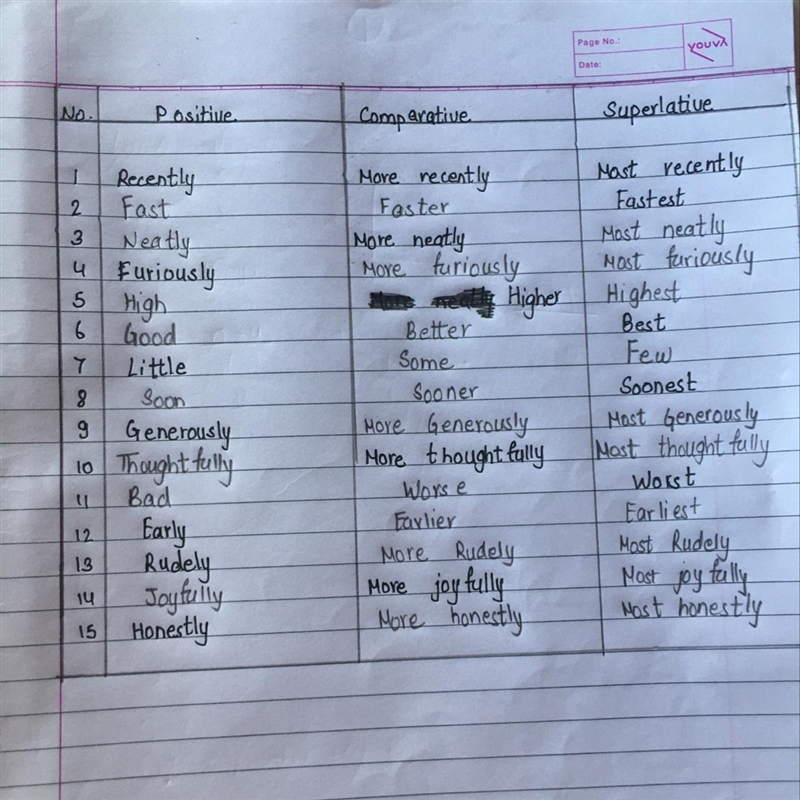 Page No.:
Date:
YOUVA
No. Positive Comparative Superlative
1 Recently More recently Most recently
2 Fast Faster Fastest
3 Neatly More neatly Most neatly
4 Furiously More furiously Most furiously
5 High More neatly Higher Highest
6 Good Better Best
7 Little Some Few
8 Soon Sooner Soonest
9 Generously More Generously Most Generously
10 Thoughtfully More thoughtfully Most thoughtfully
11 Bad Worse Worst
12 Early Earlier Earliest
13 Rudely More Rudely Most Rudely
14 Joyfully More joyfully Most joyfully
15 Honestly More honestly Most honestly